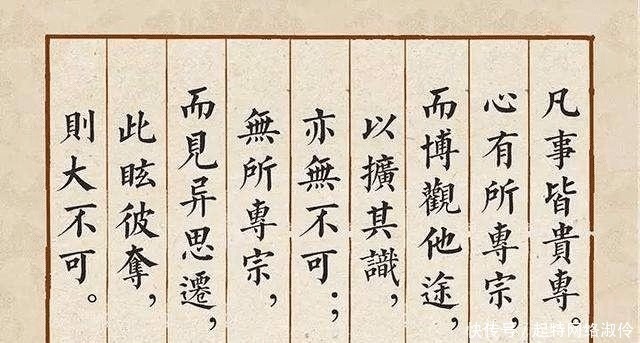 凡事皆貴專。
心有所專宗，
而博觀他途，
以擴其識，
亦無不可；
無所專宗，
而見异思遷，
此眩彼奪，
則大不可。
快传号／起特网络淑伶